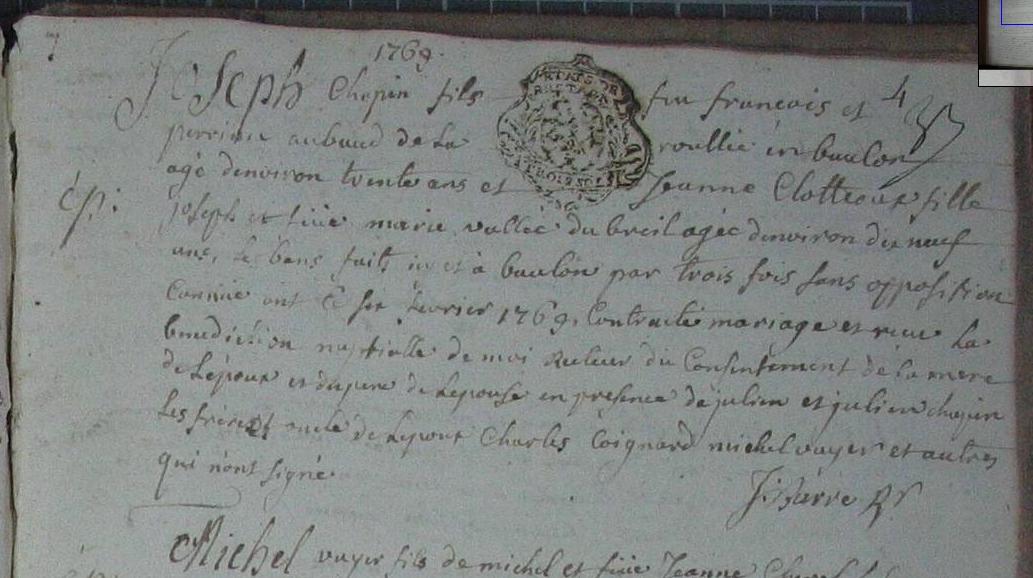 7
1769.
Joseph Chopin fils feu francois et
4
perrine aubaud de la roullie en baulon
agé denviron trente ans et Jeanne Clotteaux fille
ép:
joseph et füe marie vallée du breil agée denviron dix neuf
ans, les bans faits ici et à baulon par trois fois sans opposition
Connüe ont Ce fevrier 1769. Contracté mariage et recu la
benediction nuptialle de moi recteur du Consentement de la mere
de Lépoux et du pere de Lepouse en presence de julien et julien chopin
Les freres et oncle de Lepoux Charles Coignard michel vayer et autres
qui n'ont signé
J: Barre Rr
Michel vayer fils de michel et füe Jeanne